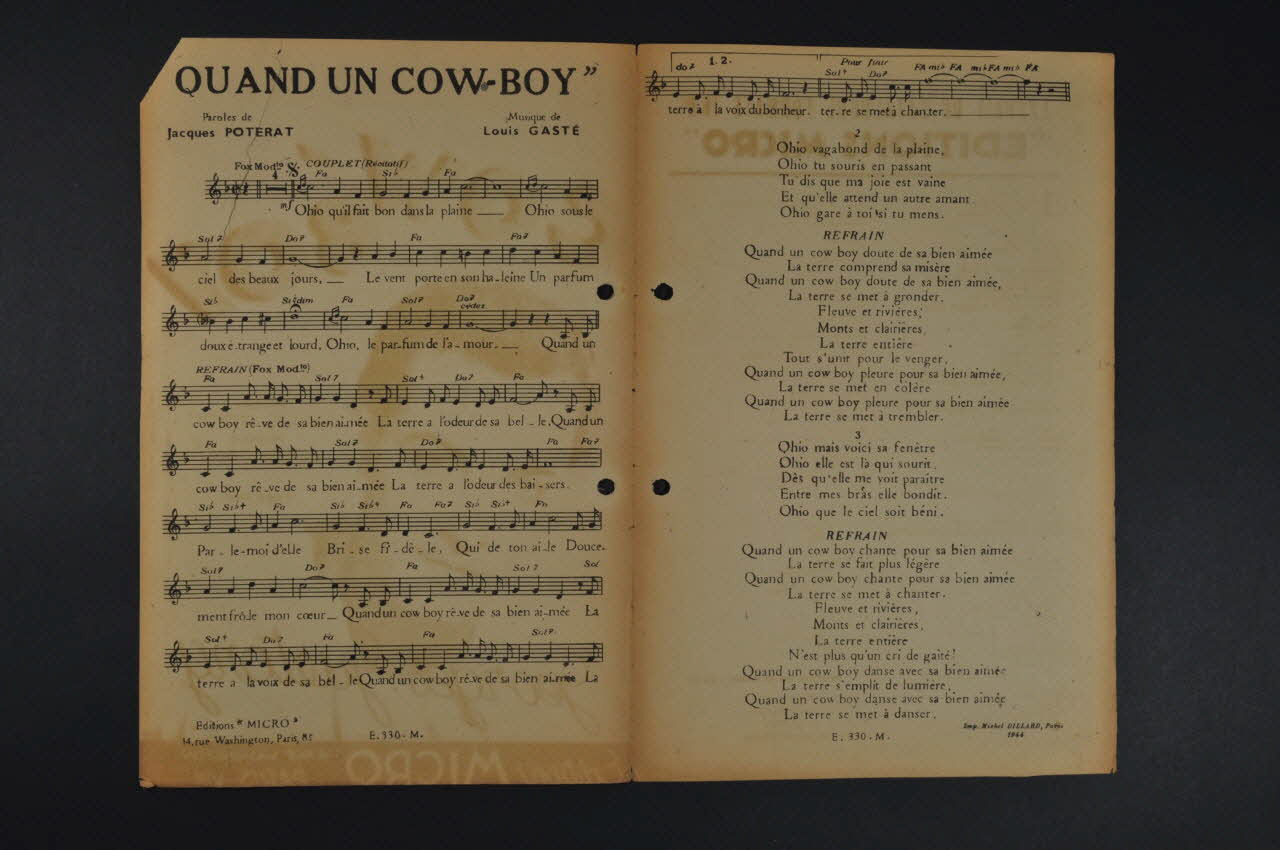 QUAND UN COW-BOY”
Paroles de
Jacques POTERAT
Musique de
Louis GASTÉ
Fox Mod.to COUPLET (Récitatif)
4
Fa Sib Fa
mf
Ohio qu'il fait bon dans la plaine ___ Ohio sous le
Sol7 Do7 Fa Fa7
ciel des beaux jours, __ Le vent porte en son ha-leine Un parfum
Sib Sibdim Fa Sol7 Do7
cédez
doux é-trange et lourd, Ohio, le par-fum de l'a-mour.__ Quand un
REFRAIN (Fox Mod.to)
Fa Sol7 Sol+ Do7 Fa
cow boy rê-ve de sa bien ai-mée La terre a l'odeur de sa bel-le, Quand un
Fa Sol7 Do7 Fa Fa7
cow boy rê-ve de sa bien ai-mée La terre a l'odeur des bai-sers.
Sib Sib+ Fa Sib Sib+ Fa Fa7 Sib Sib+ Fa
Par-le-moi d'elle Bri-se fi-dè-le, Qui de ton ai-le Douce-
Sol7 Do7 Fa Sol7 Sol
ment frô-le mon cœur__ Quand un cow boy rê-ve de sa bien ai-mée La
Sol+ Do7 Fa Fa Sol7
terre a la voix de sa bel-le Quand un cow boy rê-ve de sa bien ai-mée La
Editions “MICRO”
14, rue Washington, Paris, 8E
E. 330-M.
do7 1. 2. Pour finir
Sol+ Do7 FA mib FA mib FA mib FA
terre à la voix du bonheur. ter-re se met à chan-ter.
2
Ohio vagabond de la plaine,
Ohio tu souris en passant
Tu dis que ma joie est vaine
Et qu'elle attend un autre amant
Ohio gare à toi si tu mens.
REFRAIN
Quand un cow boy doute de sa bien aimée
La terre comprend sa misère
Quand un cow boy doute de sa bien aimée,
La terre se met à gronder.
Fleuve et rivières,
Monts et clairières,
La terre entière
Tout s'unit pour le venger.
Quand un cow boy pleure pour sa bien aimée,
La terre se met en colère
Quand un cow boy pleure pour sa bien aimée
La terre se met à trembler.
3
Ohio mais voici sa fenêtre
Ohio elle est là qui sourit.
Dès qu'elle me voit paraître
Entre mes bras elle bondit.
Ohio que le ciel soit béni.
REFRAIN
Quand un cow boy chante pour sa bien aimée
La terre se fait plus légère
Quand un cow boy chante pour sa bien aimée
La terre se met à chanter.
Fleuve et rivière,
Monts et clairières,
La terre entière
N'est plus qu'un cri de gaîté!
Quand un cow boy danse avec sa bien aimée
La terre s'emplit de lumière,
Quand un cow boy danse avec sa bien aimée
La terre se met à danser.
Imp. Michel DILLARD, Paris
1944
E. 330-M.